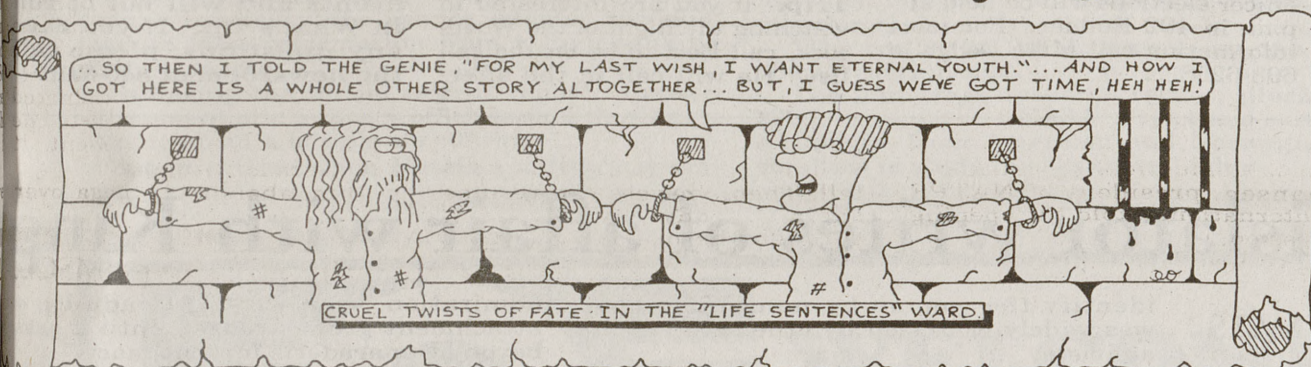 ...SO THEN I TOLD THE GENIE, "FOR MY LAST WISH, I WANT ETERNAL YOUTH."...AND HOW I
GOT HERE IS A WHOLE OTHER STORY ALTOGETHER... BUT, I GUESS WE'VE GOT TIME, HEH HEH!
CRUEL TWISTS OF FATE. IN THE "LIFE SENTENCES" WARD.